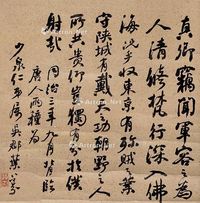 真卿竊聞軍容之為
人清修梵行深入佛
海況乎收東京有殄賊之業
守陝城有戴天之功朝野之人
所共貴仰豈獨有分於僕
射哉
同治三年九月背臨
唐人兩種為
少泉仁弟屬吳郡葉